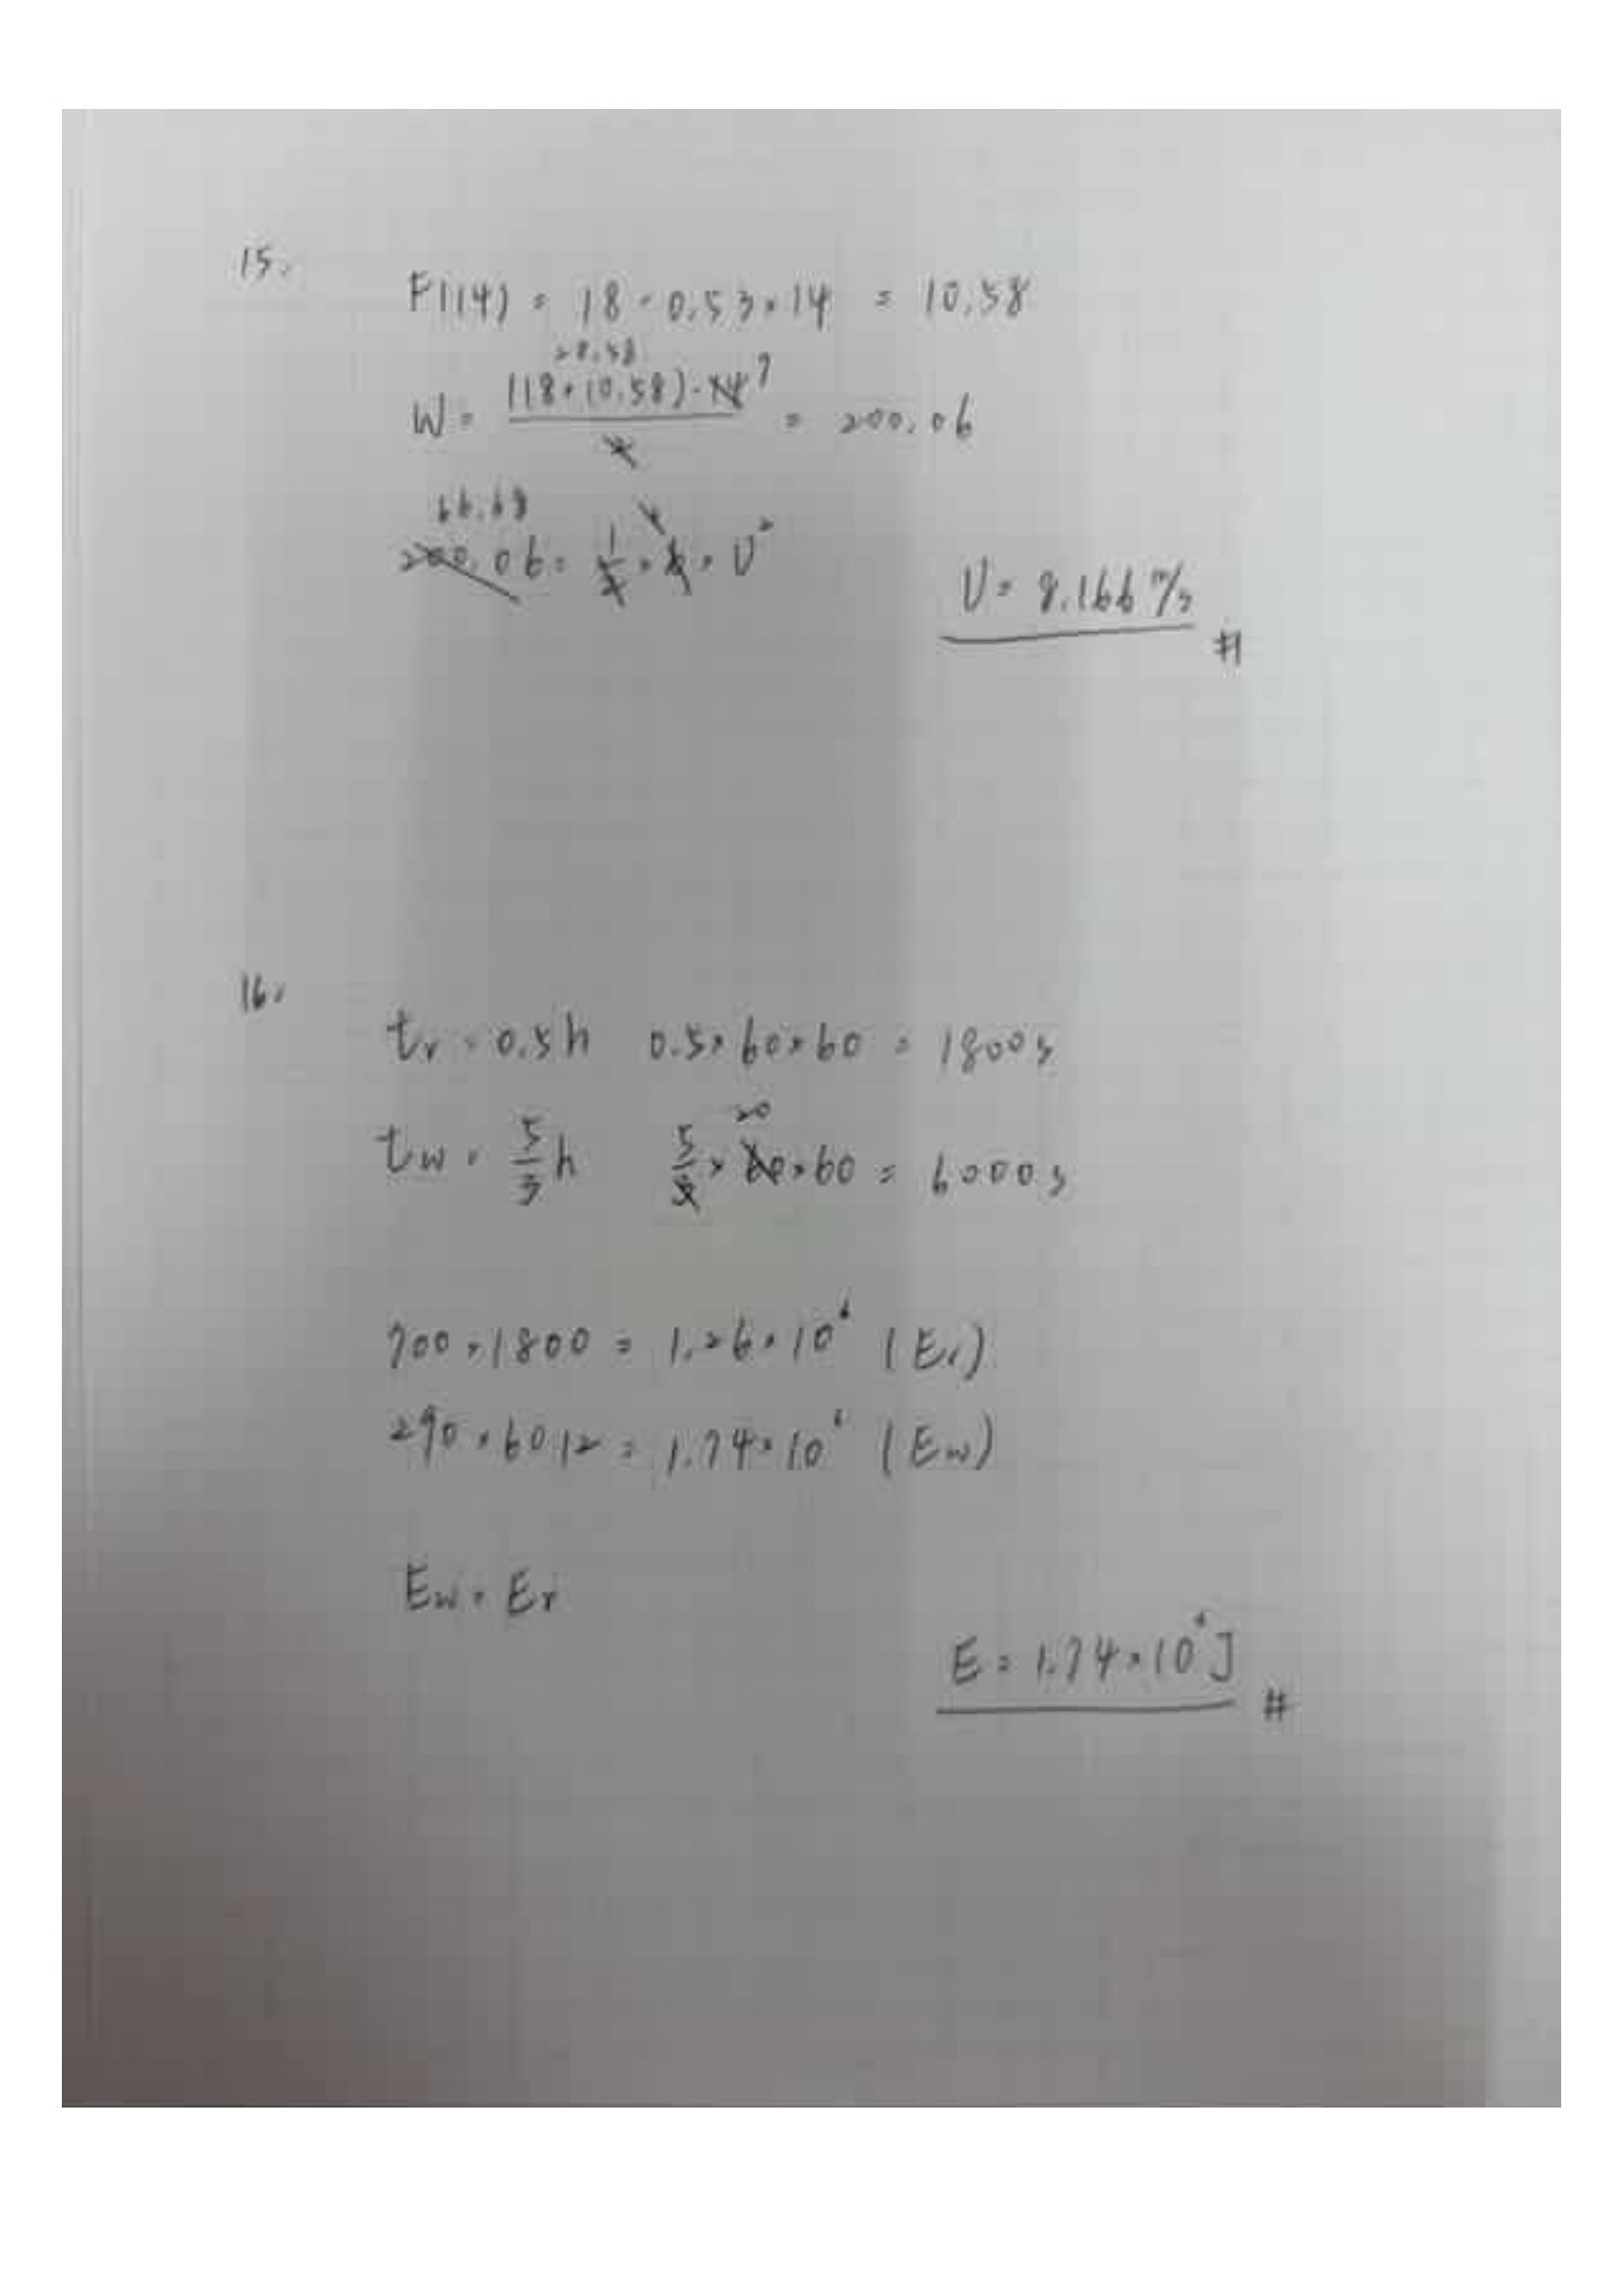 15.
F(14) = 18 - 0.53 × 14 = 10.58
28.58
W = (18+10.58)·14 7 / 2 = 200.06
66.68
200.06 = 1/2 × 6 × V²
V = 8.166 m/s #
16.
tr = 0.5h 0.5 × 60 × 60 = 1800s
20
tw = 5/3 h 5/3 × 60 × 60 = 6000s
700 × 1800 = 1.26 × 10⁶ (Er)
290 × 6012 = 1.74 × 10⁶ (Ew)
Ew > Er
E = 1.74 × 10⁶ J #